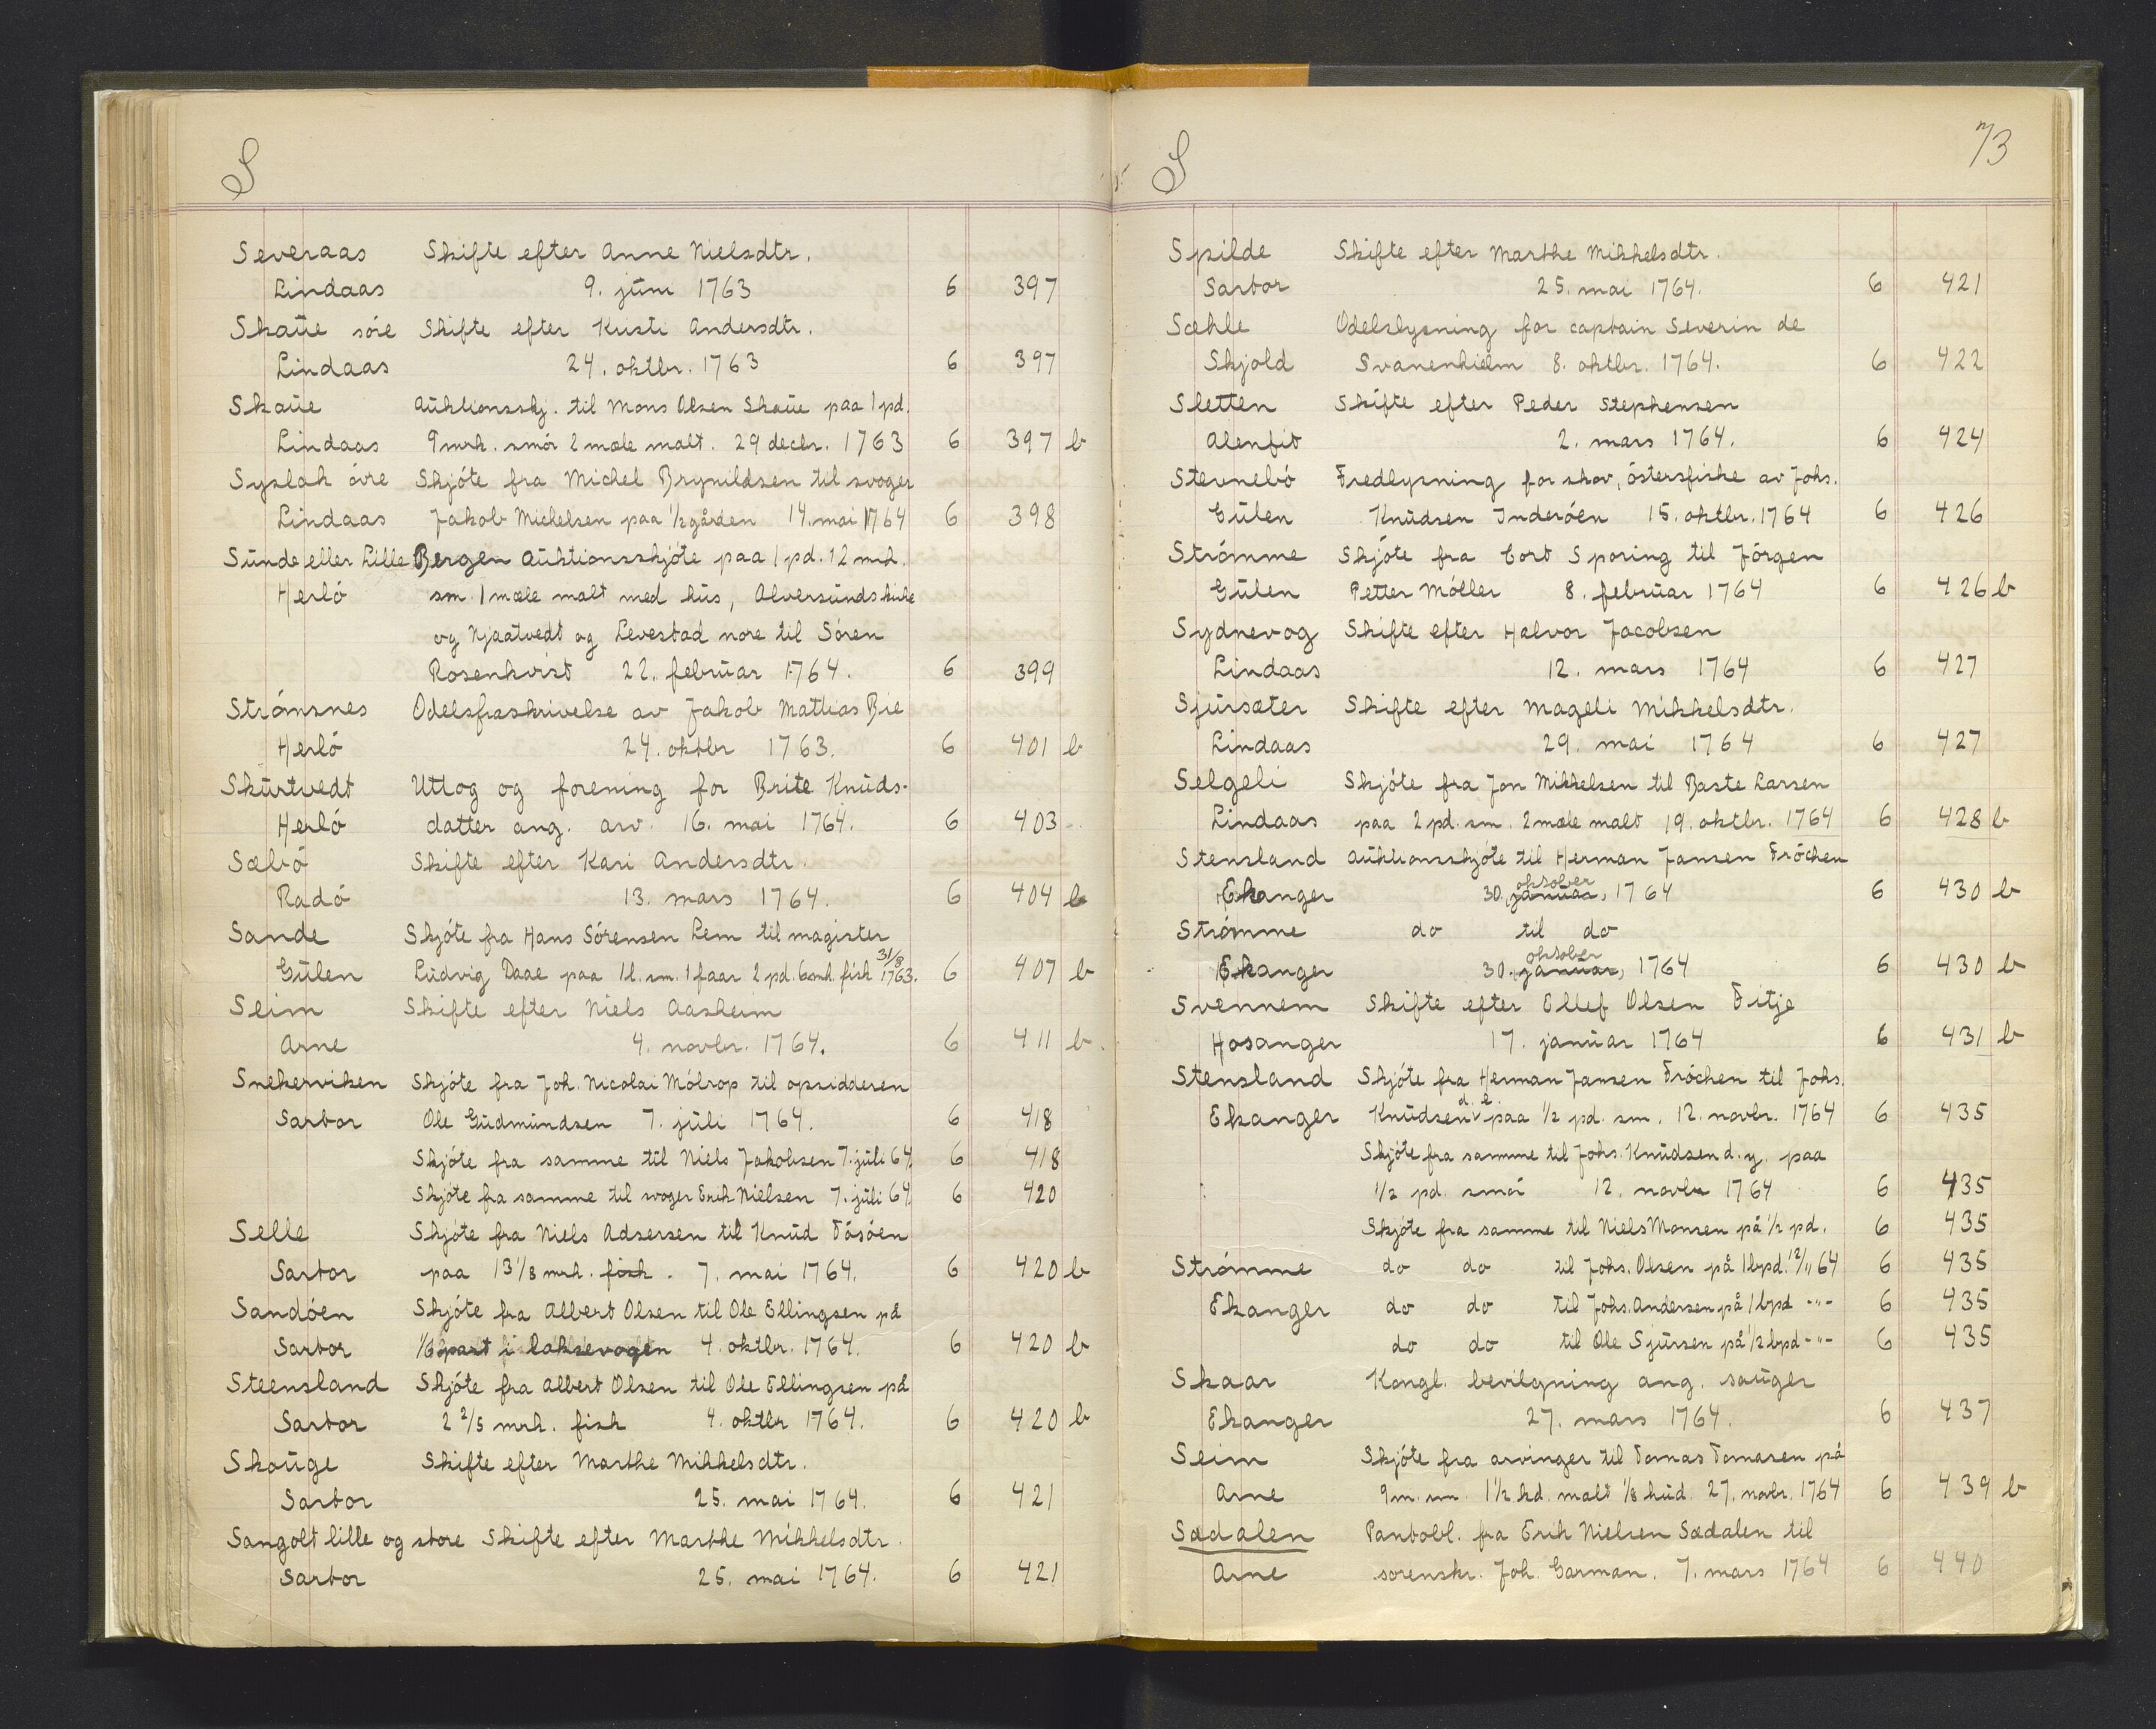 S
Severaas Skifte efter Anne Nielsdtr.
Lindaas 9. juni 1763 6 397
Skaue söre Skifte efter Kristi Andersdtr.
Lindaas 24. oktbr. 1763 6 397
Skaue Auktionsskj. til Mons Olsen Skaue paa 1 pd.
Lindaas 9 mrk. smör 2 mæle malt. 29 decbr. 1763 6 397 b
Syslak övre Skjöte fra Michel Brynildsen til svoger
Lindaas Jakob Michelsen paa 1/2 gården 14. mai 1764 6 398
Sunde eller Lille Bergen Auktionsskjöte paa 1 pd. 12 mrk.
Herlö sm 1 mæle malt med hus, Alversunds kirke
og Njaatvedt og Levestad nore til Sören
Rosenkvist 22. februar 1764. 6 399
Strömsnes Odelsfraskrivelse av Jakob Mathias Bie
Herlö 24. oktbr 1763. 6 401 b
Skurtvedt Utlog og forening for Brite Knuds-
Herlö datter ang. arv. 16. mai 1764. 6 403
Sæbö Skifte efter Kari Andersdtr.
Radö 13. mars 1764. 6 404 b
Sande Skjöte fra Hans Sörensen Lem til magister
Gulen Ludvig Daae paa 1 l. sm. 1 faar 2 pd. 6 mrk. fisk 31/8 1763. 6 407 b
Seim Skifte efter Niels Aasheim
Arne 4. novbr. 1764. 6 411 b.
Snekerviken Skjöte fra Joh. Nicolai Mölrop til opsidderen
Sartor Ole Gudmundsen 7. juli 1764. 6 418
Skjöte fra samme til Niels Jakobsen 7. juli 64. 6 418
Skjöte fra samme til svoger Erik Nielsen 7. juli 64. 6 420
Selle Skjöte fra Niels Adsersen til Knud Tösöen
Sartor paa 13 1/8 mrk. fisk. 7. mai 1764. 6 420 b
Sandöen Skjöte fra Albert Olsen til Ole Ellingsen på
Sartor 1/6 part i Laksevogen 4. oktbr. 1764. 6 420 b
Steensland Skjöte fra Albert Olsen til Ole Ellingsen på
Sartor 2 2/5 mrk. fisk 4. oktbr 1764. 6 420 b
Skouge Skifte efter Marthe Mikkelsdtr.
Sartor 25. mai 1764. 6 421
Sangolt lille og store Skifte efter Marthe Mikkelsdtr.
Sartor 25. mai 1764. 6 421
S 73
Spilde Skifte efter Marthe Mikkelsdtr.
Sartor 25. mai 1764. 6 421
Sæhle Odelslysning for captain Severin de
Skjold Svanenhielm 8. oktbr. 1764. 6 422
Sletten Skifte efter Peder Stephensen
Alenfit 2. mars 1764. 6 424
Stevnebö Fredlysning for skov, östersfiske av Johs.
Gulen Knudsen Inderöen 15. oktbr. 1764 6 426
Strömme Skjöte fra Cort Sporing til Jörgen
Gulen Petter Möller 8. februar 1764 6 426 b
Sydnevog Skifte efter Halvor Jacobsen
Lindaas 12. mars 1764 6 427
Sjursæter Skifte efter Mageli Mikkelsdtr.
Lindaas 29. mai 1764 6 427
Selgeli Skjöte fra Jon Mikkelsen til Baste Larsen
Lindaas paa 2 pd. sm. 2 mæle malt 19. oktbr. 1764 6 428 b
Stensland Auktionsskjöte til Herman Jansen Fröchen
Ekanger 30. januar, oktober 1764 6 430 b
Strömme do til do
Ekanger 30. januar, oktober 1764 6 430 b
Svennem Skifte efter Ellef Olsen Fitje
Hosanger 17. januar 1764 6 431 b
Stensland Skjöte fra Herman Jansen Fröchen til Johs.
Ekanger Knudsen d. e. paa 1/2 pd. sm. 12. novbr. 1764 6 435
Skjöte fra samme til Johs. Knudsen d. y. paa
1/2 pd. smör 12. novbr 1764 6 435
Skjöte fra samme til Niels Monsen på 1/2 pd. 6 435
Strömme do do til Johs. Olsen på 1 bpd. 12/11 64 6 435
Ekanger do do til Johs. Andersen på 1 bpd -"- 6 435
do do til Ole Sjursen på 1/2 bpd -"- 6 435
Skaar Kongl. bevilgning ang. sauger
Ekanger 27. mars 1764. 6 437
Seim Skjöte fra arvinger til Tomas Tomasen på
Arne 9 m. sm. 1 1/2 hd. malt 1/8 hud. 27. novbr. 1764 6 439 b
Sædalen Pantobl. fra Erik Nielsen Sædalen til
Arne sorenskr. Joh. Garman. 7. mars 1764 6 440